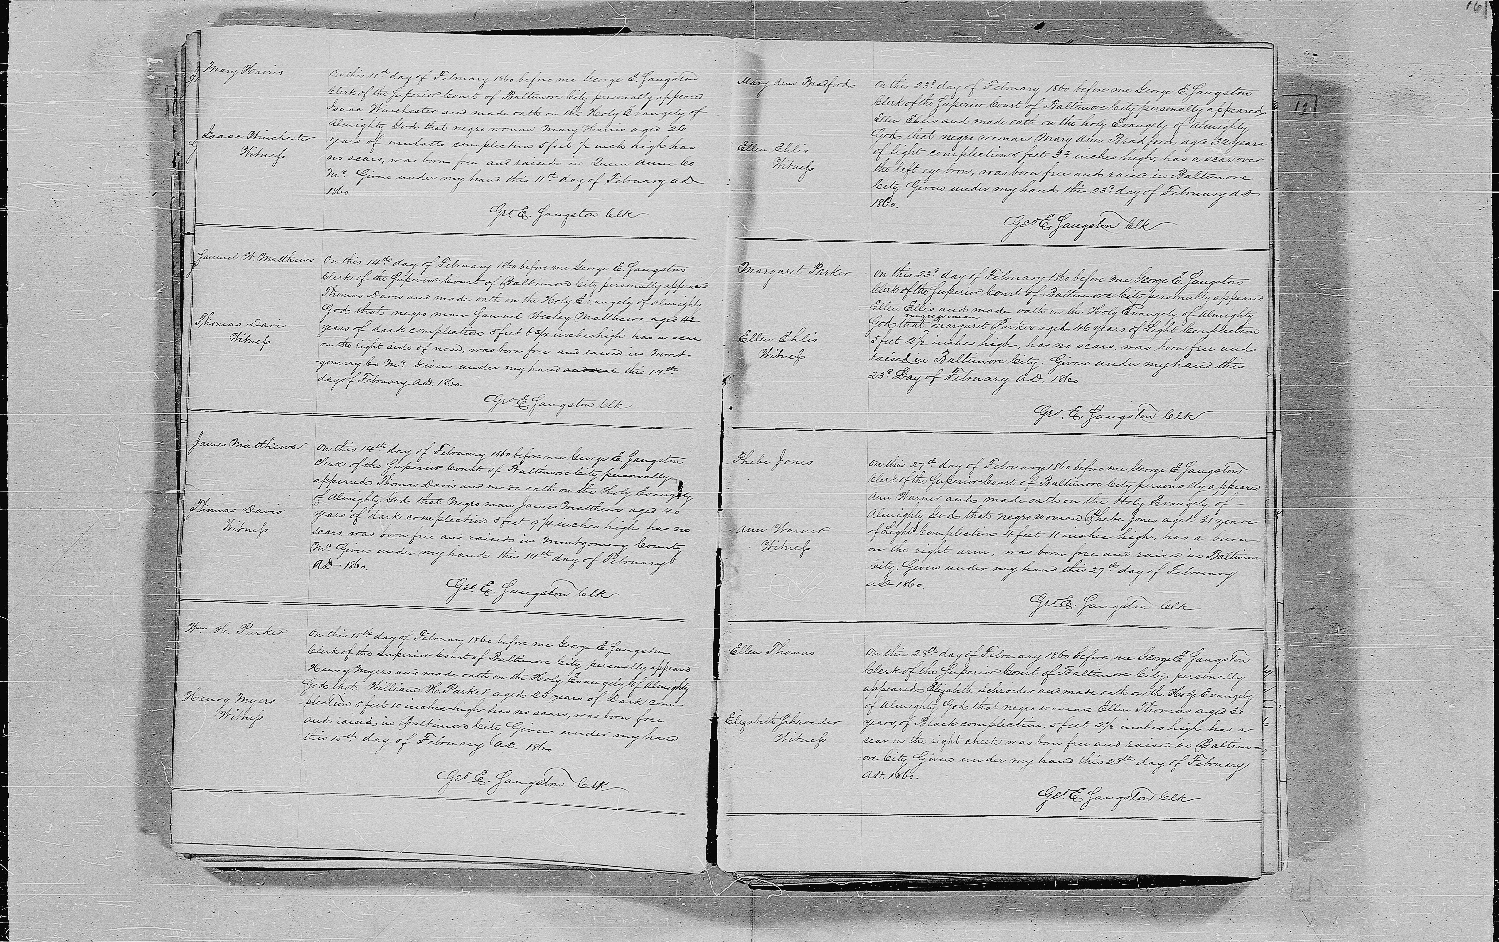 Mary Harris
On this 11th day of February 1860 before me George E. Sangston
Clerk of the Superior Court of Baltimore City personally appeared
Isaac Winchester and made oath on the Holy Evangely of
Almighty God that negro woman Mary Harris aged 26
years of mulatto complection 5 feet inch high has
no scars, was born free and raised in Queen Anns Co
Md. Given under my hand this 11th day of February A.D.
1860
Isaac Winchester
Witness
Geo E. Sangston Clk
Samuel W. Matthews
On this 14th day of February 1860 before me George E. Sangston
Clerk of the Superior Court of Baltimore City personally appeared
Thomas Davis and made oath on the Holy Evangely of Almighty
God that negro man Samuel Wesley Matthews aged 42
years of dark complection 5 feet 6 1/2 inches high has a scar
on the right side of nose, was born free and raised in Mont-
gomery Co Md. Given under my hand this 14th
day of February A.D. 1860
Thomas Davis
Witness
Geo E. Sangston Clk
James Matthews
On this 14th day of February 1860 before me George E. Sangston
Clerk of the Superior Court of Baltimore City personally
appeared Thomas Davis and made oath on the Holy Evangely
of Almighty God that Negro man James Matthews aged 40
years of dark complection 5 feet inches high has no
scars was born free and raised in Montgomery County
Md. Given under my hand this 14th day of February
A.D. 1860
Thomas Davis
Witness
Geo E. Sangston Clk
Wm H. Parker
On this 15th day of February 1860 before me George E. Sangston
Clerk of the Superior Court of Baltimore City personally appeared
Henry Myers and made oath on the Holy Evangely of Almighty
God that William H. Parker aged 25 years of Dark com-
plection 5 feet 10 inches high has no scars, was born free
and raised in Baltimore City Given under my hand
this 15th day of February A.D. 1860
Henry Myers
Witness
Geo E. Sangston Clk
Mary Ann Bradford
On this 23d day of February 1860 before me George E. Sangston
Clerk of the Superior Court of Baltimore City personally appeared
Ellen Ellis and made oath on the Holy Evangely of Almighty
God that negro woman Mary Ann Bradford, aged 32 years
of Light complection 5 feet inches high, has a scar over
the left eye brow, was born free and raised in Baltimore
City Given under my hand this 23d day of February A.D.
1860.
Ellen Ellis
Witness
Geo E. Sangston Clk
Margaret Parker
On this 23d day of February 1860 before me George E. Sangston
Clerk of the Superior Court of Baltimore City personally appeared
Ellen Ellis and made oath on the Holy Evangely of Almighty
God that negro woman Margaret Parker aged 46 years of Light Complection
5 feet 2 1/2 inches high, has no scars, was born free and
raised in Baltimore City. Given under my hand this
23d Day of February A.D. 1860
Ellen Ellis
Witness
Geo. E. Sangston Clk
Phebe Jones
On this 27th day of February 1860 before me George E. Sangston
Clerk of the Superior Court of Baltimore City personally appeared
Ann Warner and made oath on the Holy Evangely of
Almighty God that negro woman Phebe Jones aged 21 years
of Light Complection 4 feet 11 inches high, has a
on the right arm, was born free and raised in Baltimore
City. Given under my hand this 27th day of February
A.D. 1860.
Ann Warner
Witness
Geo E. Sangston Clk
Ellen Thomas
On this 28th day of February 1860 before me George E. Sangston
Clerk of the Superior Court of Baltimore City personally
appeared Elizabeth Schroeder and made oath on the Holy Evangely
of Almighty God that negro woman Ellen Thomas aged
years of Black complection 5 feet 2 1/2 inches high has a
scar on the right cheek was born free and raised in Baltim-
ore City Given under my hand this 28th day of February
A.D. 1860.
Elizabeth Schroeder
Witness
Geo E. Sangston Clk